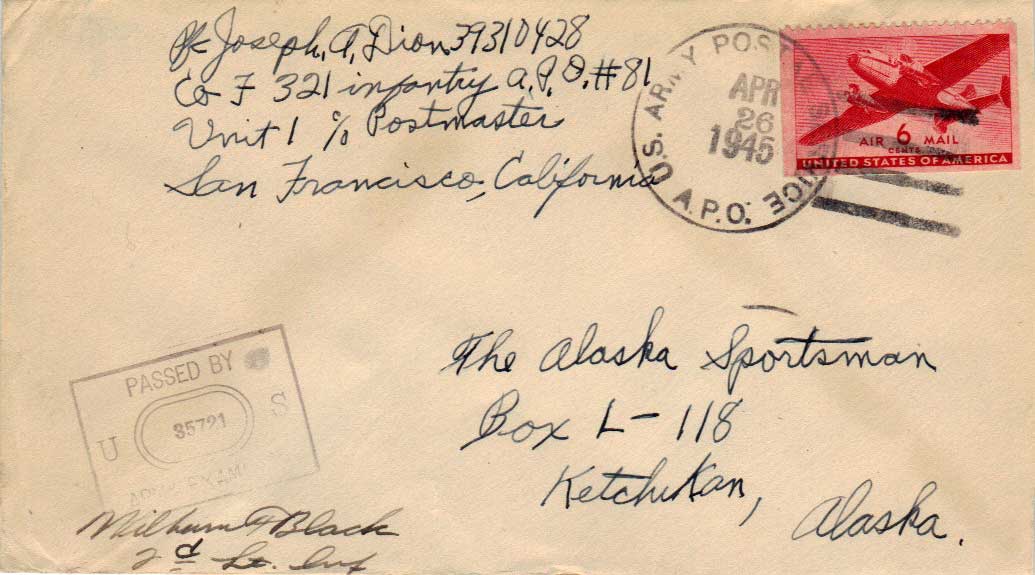 Pfc Joseph, A, Dion 39310428
Co F 321 infantry A.P.O. #81
Unit 1 % Postmaster
San Francisco, California
U.S. ARMY POSTAL SERVICE A.P.O.
APR
26
1945
AIR 6 MAIL
CENTS
UNITED STATES OF AMERICA
The Alaska Sportsman
Box L-118
Ketchikan,
Alaska.
PASSED BY
U 35721 S
ARMY EXAM
Milburn F Black
2d Lt. Inf